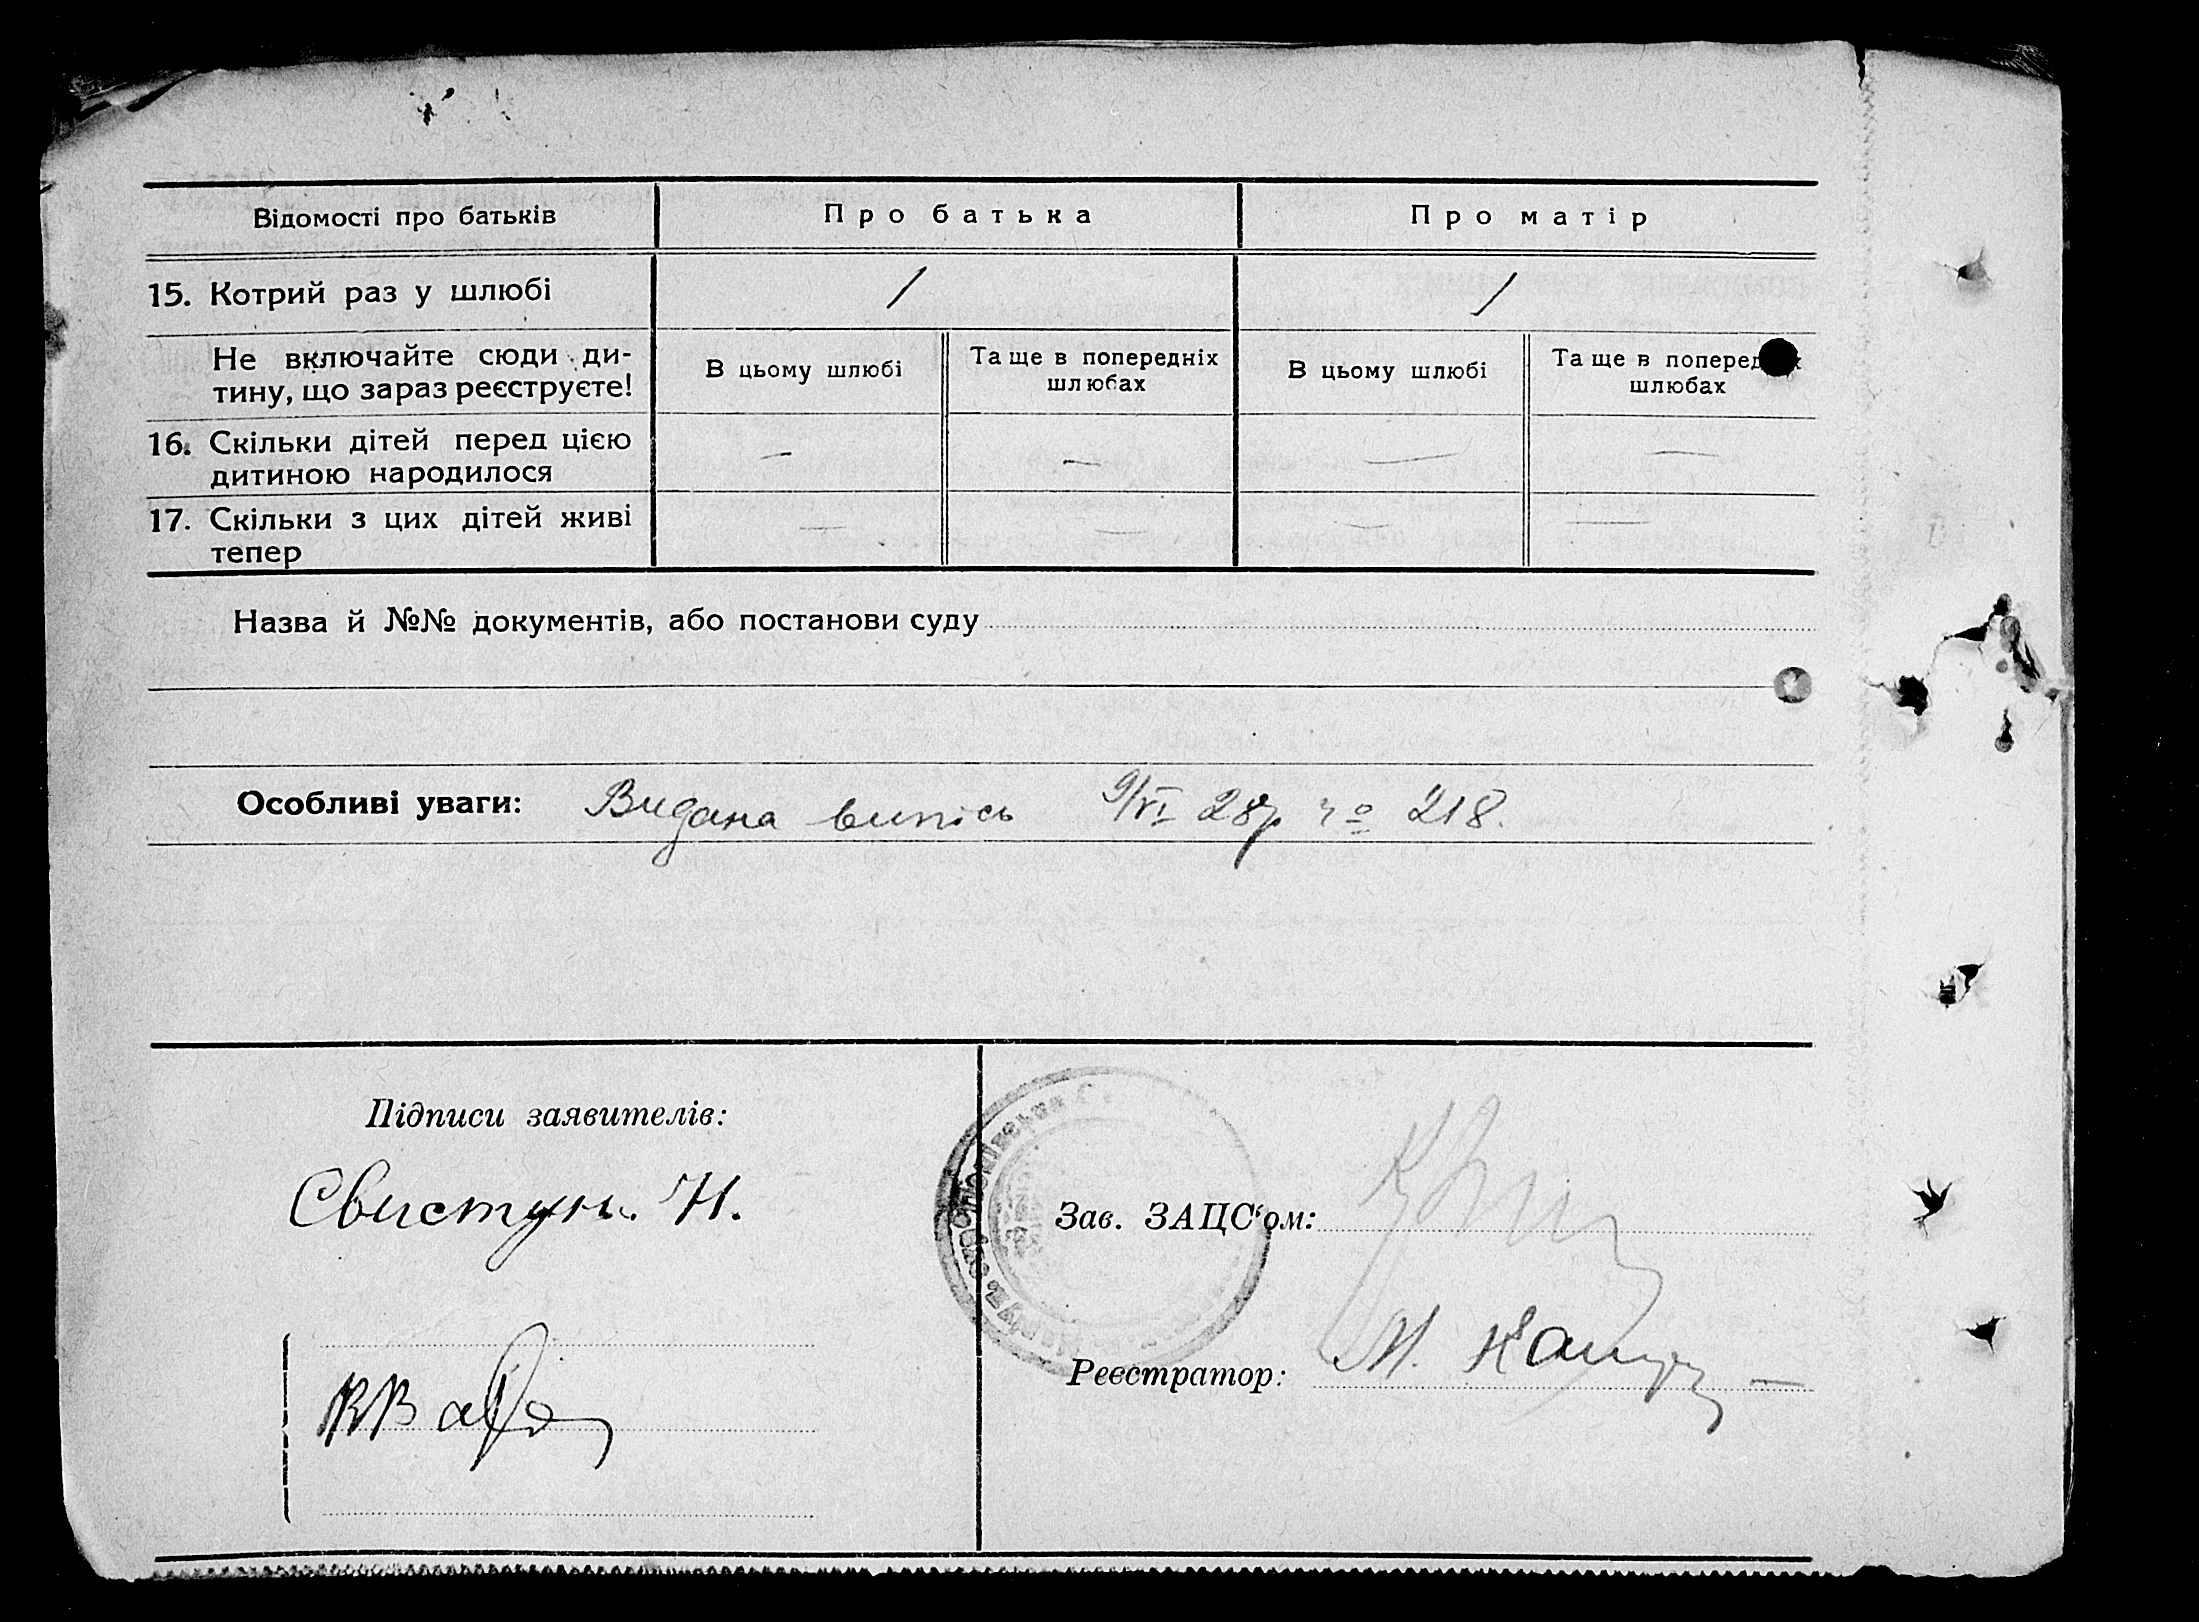 Відомості про батьків Про батька Про матір
15. Котрий раз у шлюбі / /
Не включайте сюди ди-
тину, що зараз реєструєте!
В цьому шлюбі Та ще в попередніх
шлюбах
В цьому шлюбі Та ще в поперед
шлюбах
16. Скільки дітей перед цією
дитиною народилося — — — —
17. Скільки з цих дітей живі
тепер — — — —
Назва й №№ документів, або постанови суду
Особливі уваги: Видана випісь 9/VI 28р № 218.
Підписи заявителів:
Свистун. Н.
Зав. ЗАЦС'ом:
Реєстратор: М.